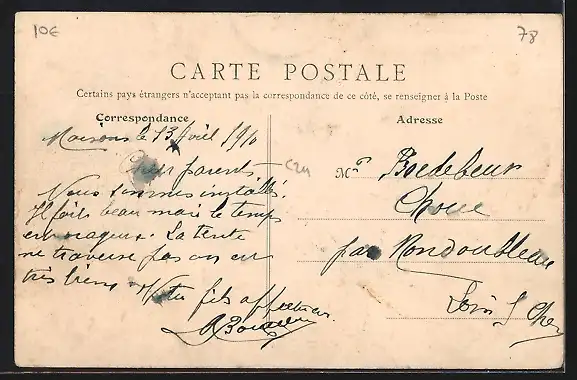 10€
78
CARTE POSTALE
Certains pays étrangers n'acceptant pas la correspondance de ce côté, se renseigner à la Poste
Correspondance
Adresse
le 13 Avril 1910
Cher parents
Nous sommes installés.
Il fait beau mais le temps
est orageux. La tente
ne traverse pas on est
très bien. Votre fils affectueux
Mr
Choue
par Mondoubleau
Loir & Cher